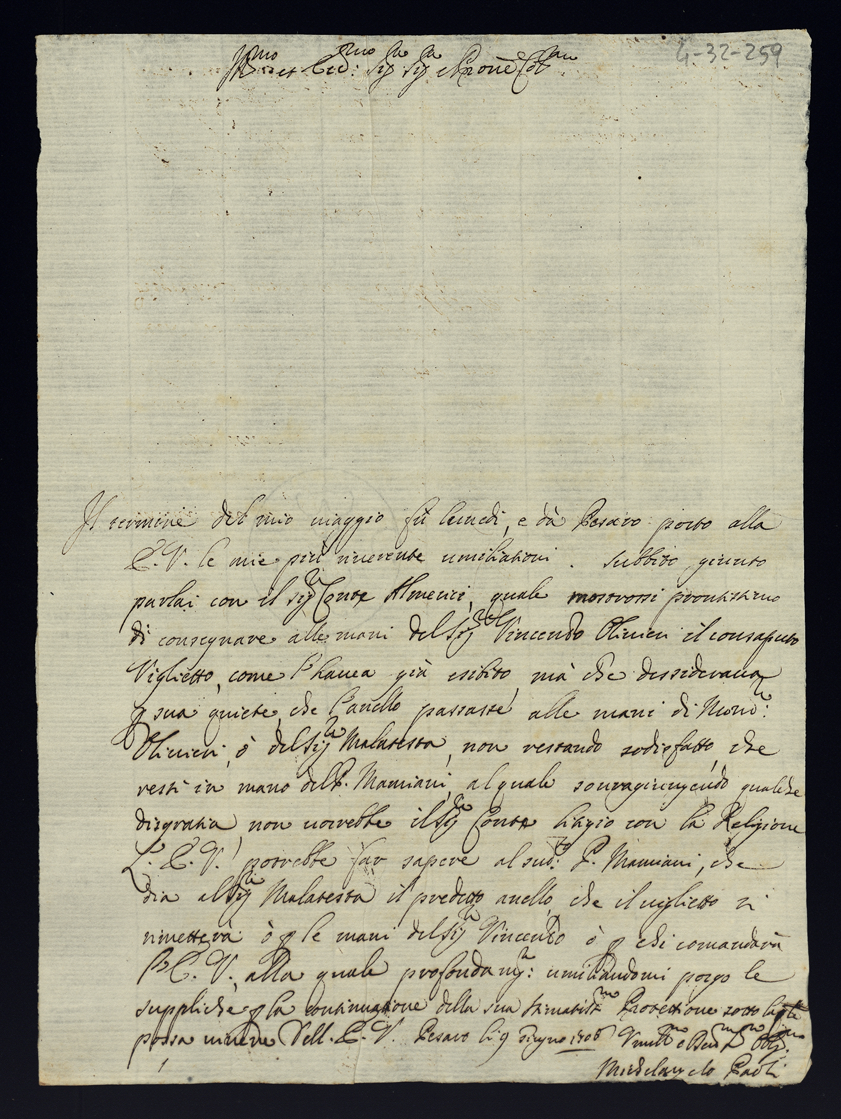 4-32-259
Ill.mo et Ecc.mo Sig.r Sig.r e Prone Col.mo
Il termine del mio viaggio fù lunedì, e dà Pesaro porto alla
E. V. le mie più riverente umiliationi. Subbito giunto
parlai con il Sig.r Conte Almerici, quale mostrossi prontissimo
di consegnare alle mani del Sig.r Vincenzo Olivieri il consaputo
Viglietto, come l'havea già esibito, mà che dessiderava
p sua quiete, che l'anello passasse alle mani di Mons.r
Olivieri, ò del Sig.r Malatesta, non restando sodisfatto, che
resti in mano del P. Mamiani, al quale sovragiungendo qualche
disgratia, non vorrebbe il Sig.r Conte litigio con la Religione
L'E. V. potrebbe far sapere al sud.to P. Mamiani, che
dia al Sig.r Malatesta il predetto anello, che il viglietto si
rimetterà ò p le mani del Sig.r Vincenzo ò p chi comandarà
l'E. V., alla quale profondam.te umiliandomi porgo le
suppliche p la continuatione della sua stimatiss.ma Protettione sotto
possa vivere Dell. E. V. Pesaro li 9 Giugno 1708
Michelangelo Paoli